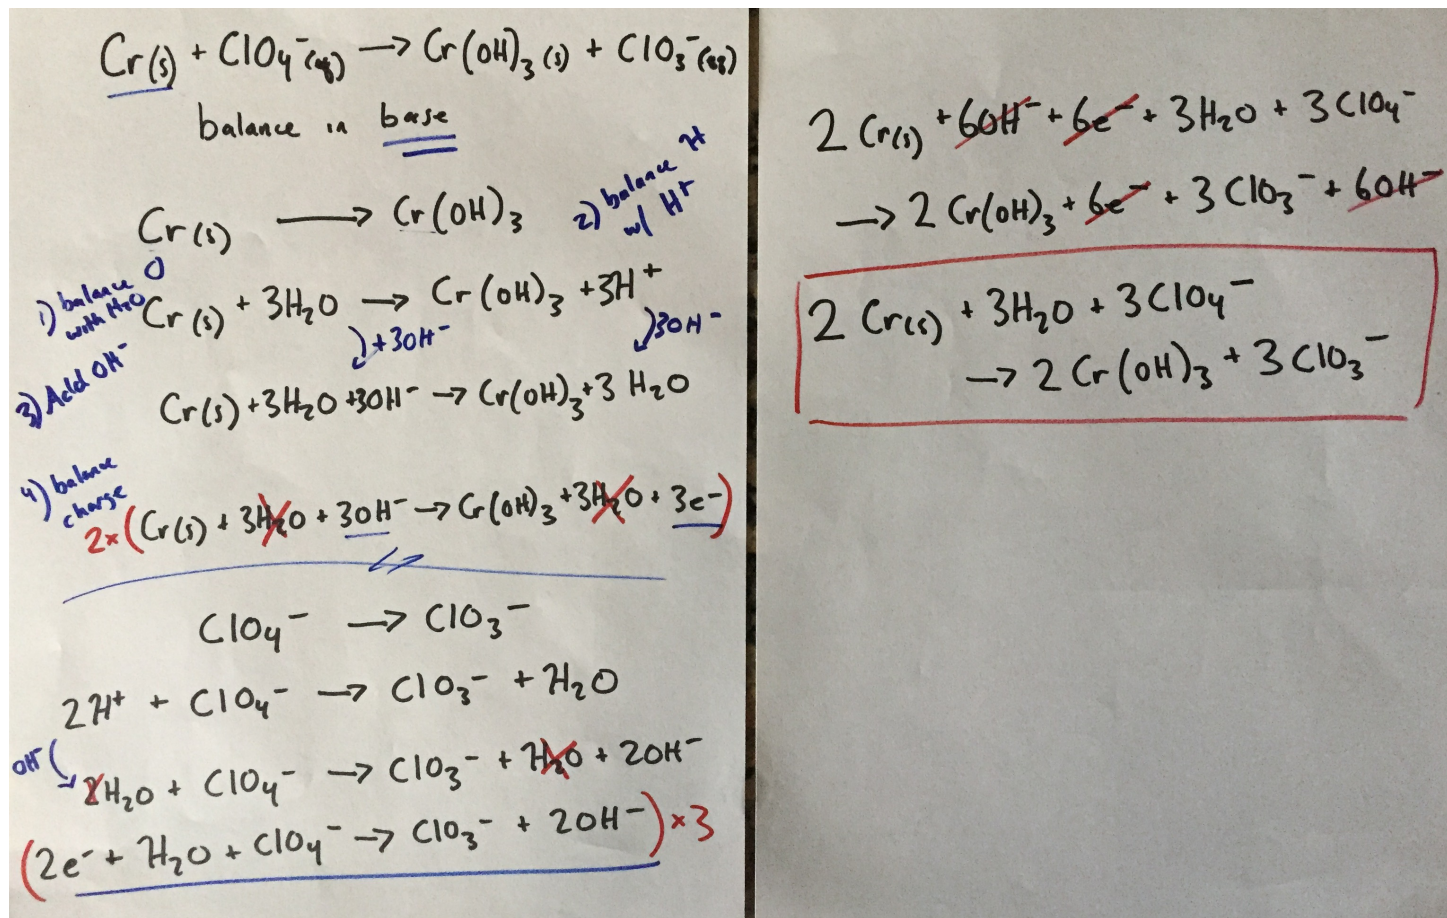 Cr(s) + ClO₄⁻(aq) → Cr(OH)₃(s) + ClO₃⁻(aq)
balance in base
Cr(s) → Cr(OH)₃
2) balance H
w/ H⁺
1) balance O
with H₂O
Cr(s) + 3H₂O → Cr(OH)₃ + 3H⁺
+3OH⁻
3OH⁻
3) Add OH⁻
Cr(s) + 3H₂O + 3OH⁻ → Cr(OH)₃ + 3H₂O
4) balance
charge
2×(Cr(s) + 3H₂O + 3OH⁻ → Cr(OH)₃ + 3H₂O + 3e⁻)
ClO₄⁻ → ClO₃⁻
2H⁺ + ClO₄⁻ → ClO₃⁻ + H₂O
OH⁻
2H₂O + ClO₄⁻ → ClO₃⁻ + H₂O + 2OH⁻
(2e⁻ + H₂O + ClO₄⁻ → ClO₃⁻ + 2OH⁻)×3
2Cr(s) + 6OH⁻ + 6e⁻ + 3H₂O + 3ClO₄⁻
→ 2Cr(OH)₃ + 6e⁻ + 3ClO₃⁻ + 6OH⁻
2Cr(s) + 3H₂O + 3ClO₄⁻
→ 2Cr(OH)₃ + 3ClO₃⁻